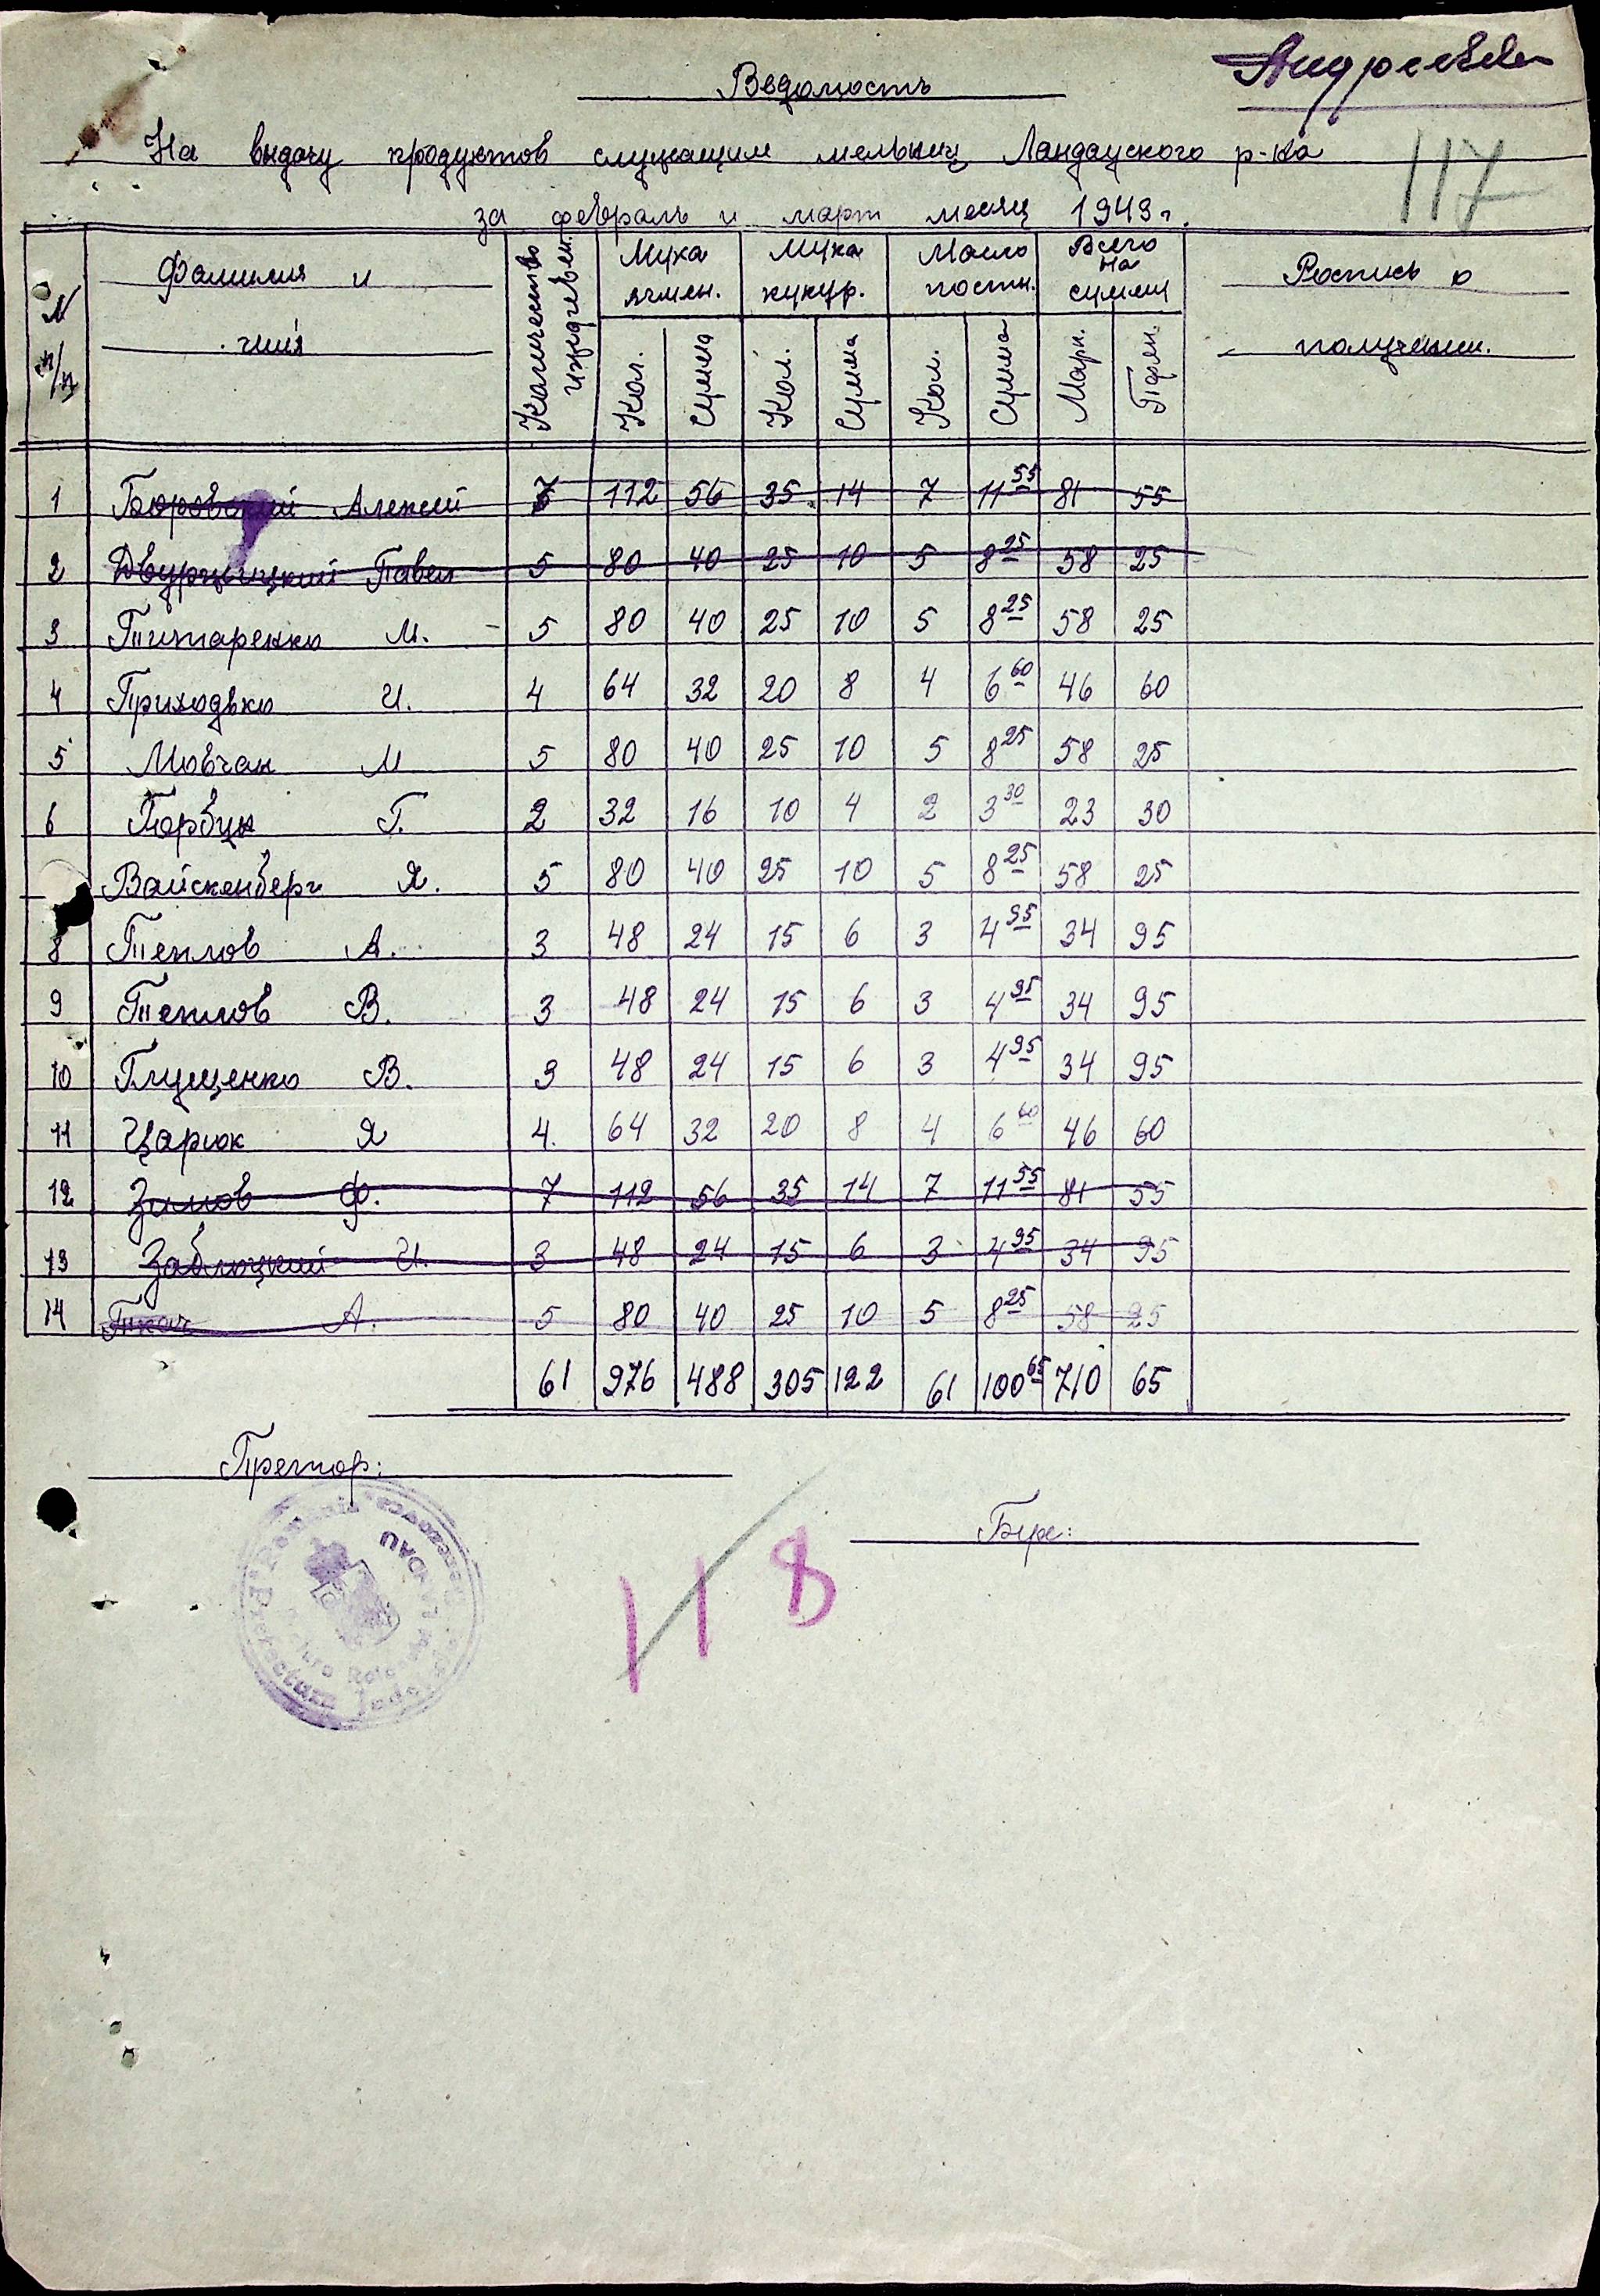 Андреевка
Ведомость
117
На выдачу продуктов служащим мельниц Ландауского р-ка
за февраль и март месяц 1943 г.
N п/п | Фамилия и имя | Количество иждевен. | Мука ячмен. | Мука кукур. | Масло постн. | Всего на сумму | Роспись о получении.
Кол. | Сумма | Кол. | Сумма | Кол. | Сумма | Марк. | Пфен.
1 Боровский Алексей 7 112 56 35 14 7 11 55 81 55
2 Павел 5 80 40 25 10 5 8 25 58 25
3 Титаренко М. 5 80 40 25 10 5 8 25 58 25
4 Приходько И. 4 64 32 20 8 4 6 60 46 60
5 Мовчан М 5 80 40 25 10 5 8 25 58 25
6 Г. 2 32 16 10 4 2 3 30 23 30
Вайскенберг Я. 5 80 40 25 10 5 8 25 58 25
8 Теплов А. 3 48 24 15 6 3 4 95 34 95
9 Теплов В. 3 48 24 15 6 3 4 95 34 95
10 Глущенко В. 3 48 24 15 6 3 4 95 34 95
11 Царюк Я 4. 64 32 20 8 4 6 60 46 60
12 Ф. 7 112 56 35 14 7 11 55 81 55
13 Заблоцкий И. 3 48 24 15 6 3 4 95 34 95
14 Ткач А. 5 80 40 25 10 5 8 25 58 25
61 976 488 305 122 61 100 65 710 65
Претор:
Бух:
118
Prefectura
LANDAU